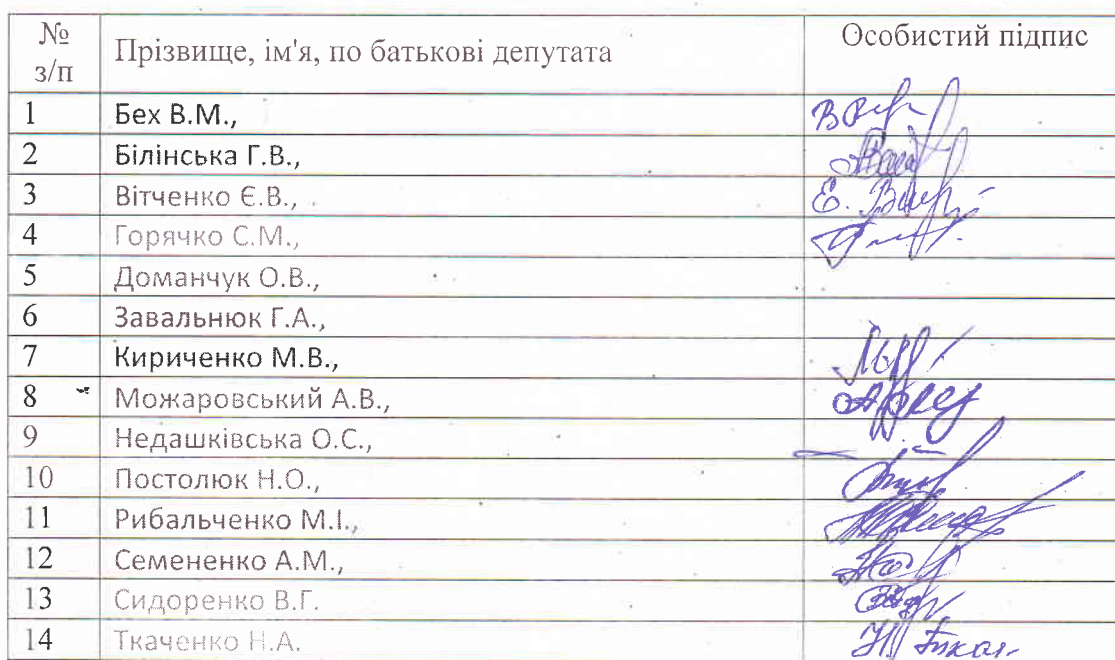 № з/п Прізвище, ім'я, по батькові депутата Особистий підпис
1 Бех В.М.,
2 Білінська Г.В.,
3 Вітченко Є.В.,
4 Горячко С.М.,
5 Доманчук О.В.,
6 Завальнюк Г.А.,
7 Кириченко М.В.,
8 Можаровський А.В.,
9 Недашківська О.С.,
10 Постолюк Н.О.,
11 Рибальченко М.І.,
12 Семененко А.М.,
13 Сидоренко В.Г.
14 Ткаченко Н.А.